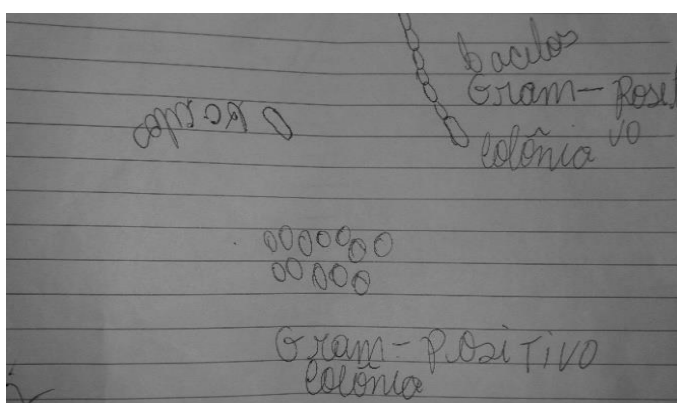 bacilos
Gram-Positi
vo
Colônia
Gram-Positivo
Colônia